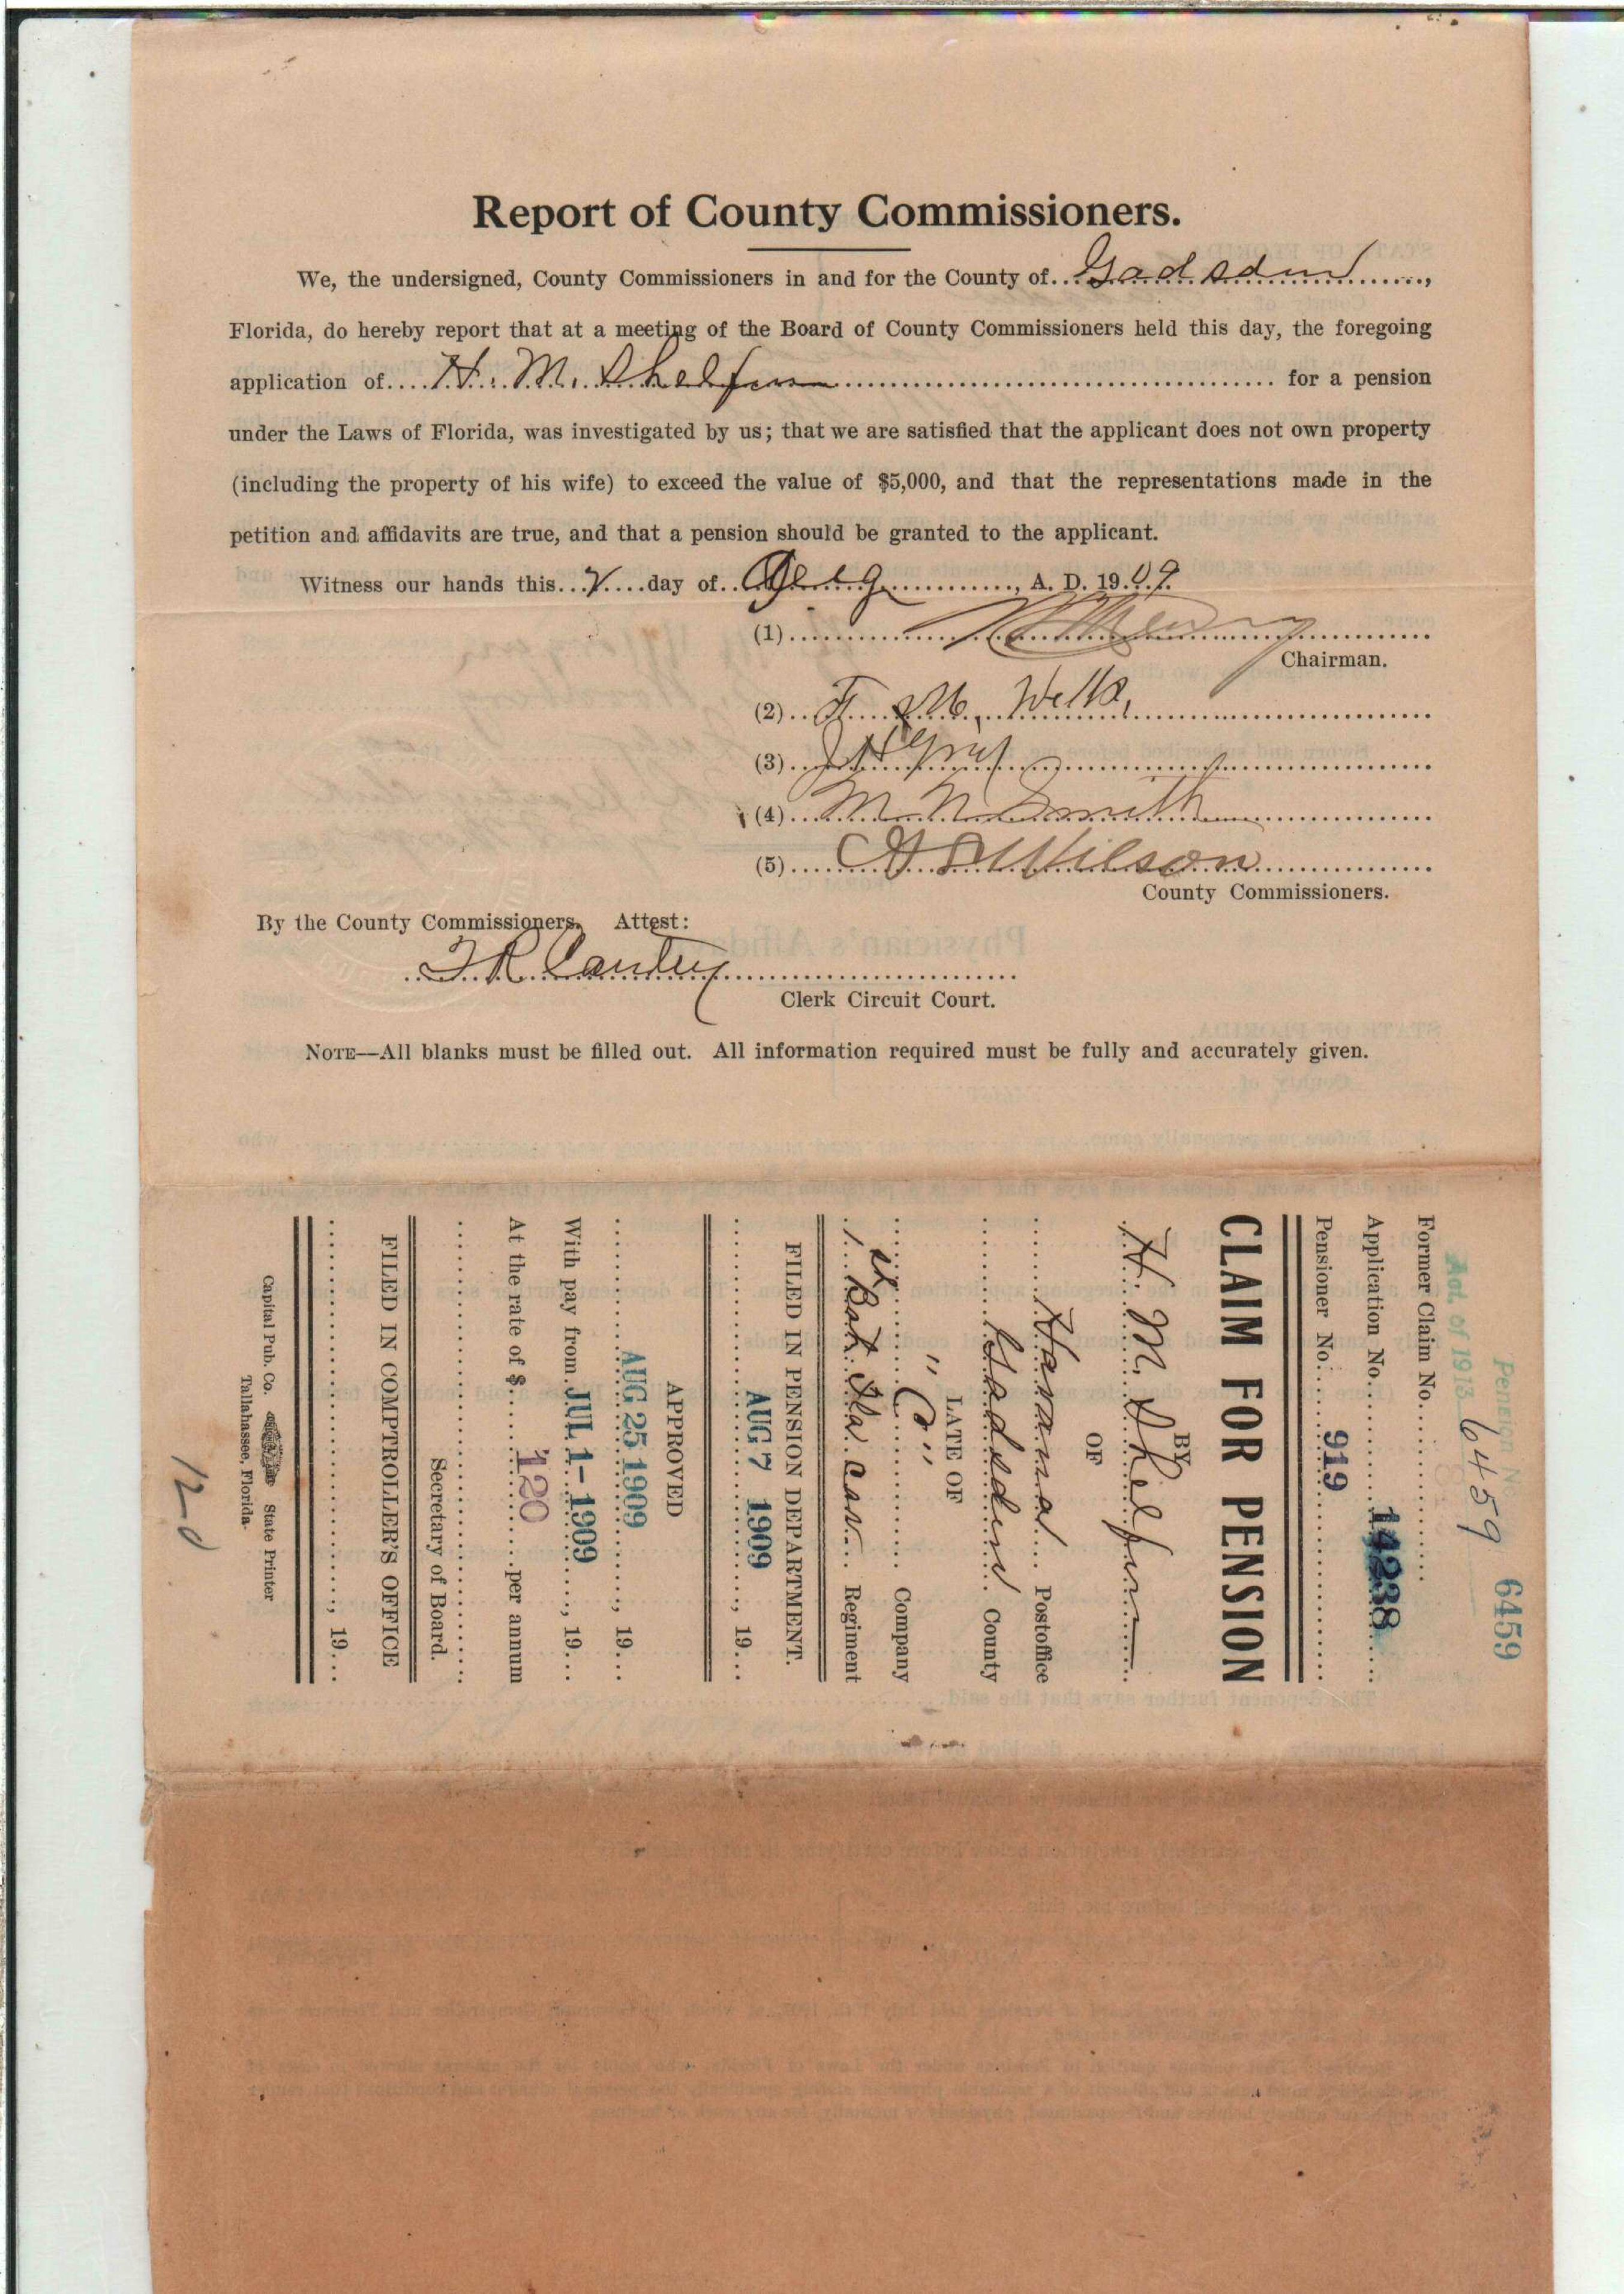 Report of County Commissioners.
We, the undersigned, County Commissioners in and for the County of...Gadsden......,
Florida, do hereby report that at a meeting of the Board of County Commissioners held this day, the foregoing
application of....H. M. Shelfer.................... for a pension
under the Laws of Florida, was investigated by us; that we are satisfied that the applicant does not own property
(including the property of his wife) to exceed the value of $5,000, and that the representations made in the
petition and affidavits are true, and that a pension should be granted to the applicant.
Witness our hands this.......day of.............., A. D. 1909
(1)
Chairman.
(2) Wells,
(3) J H
(4) M. N. Smith
(5) Wilson
County Commissioners.
By the County Commissioners, Attest:
Clerk Circuit Court.
NOTE—All blanks must be filled out. All information required must be fully and accurately given.
Pension No. 6459
Act. of 1913 6459
Former Claim No.
Application No. 14238
Pensioner No. 919
CLAIM FOR PENSION
BY
H. M. Shelfer
OF
Havana Postoffice
Gadsden County
LATE OF
"C" Company
1st Bat. Fla. Cav. Regiment
FILED IN PENSION DEPARTMENT.
AUG 7 1909, 19...
APPROVED
AUG 25 1909, 19...
With pay from JUL 1- 1909, 19...
At the rate of $ 120 per annum
Secretary of Board.
FILED IN COMPTROLLER'S OFFICE
, 19...
Capital Pub. Co. State Printer
Tallahassee, Florida.
120